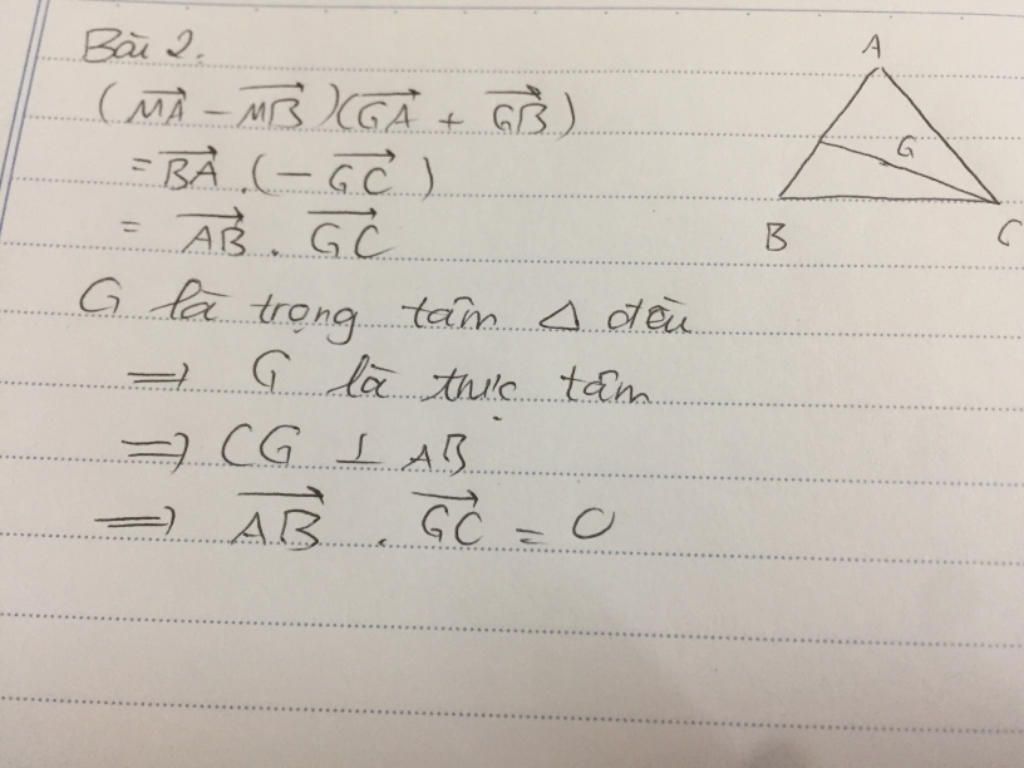 Bài 2.
(MA⃗ - MB⃗)(GA⃗ + GB⃗)
= BA⃗ . (- GC⃗)
= AB⃗ . GC⃗
G là trọng tâm Δ đều
⇒ G là trực tâm
⇒ CG ⊥ AB
⇒ AB⃗ . GC⃗ = 0
A
G
B
C